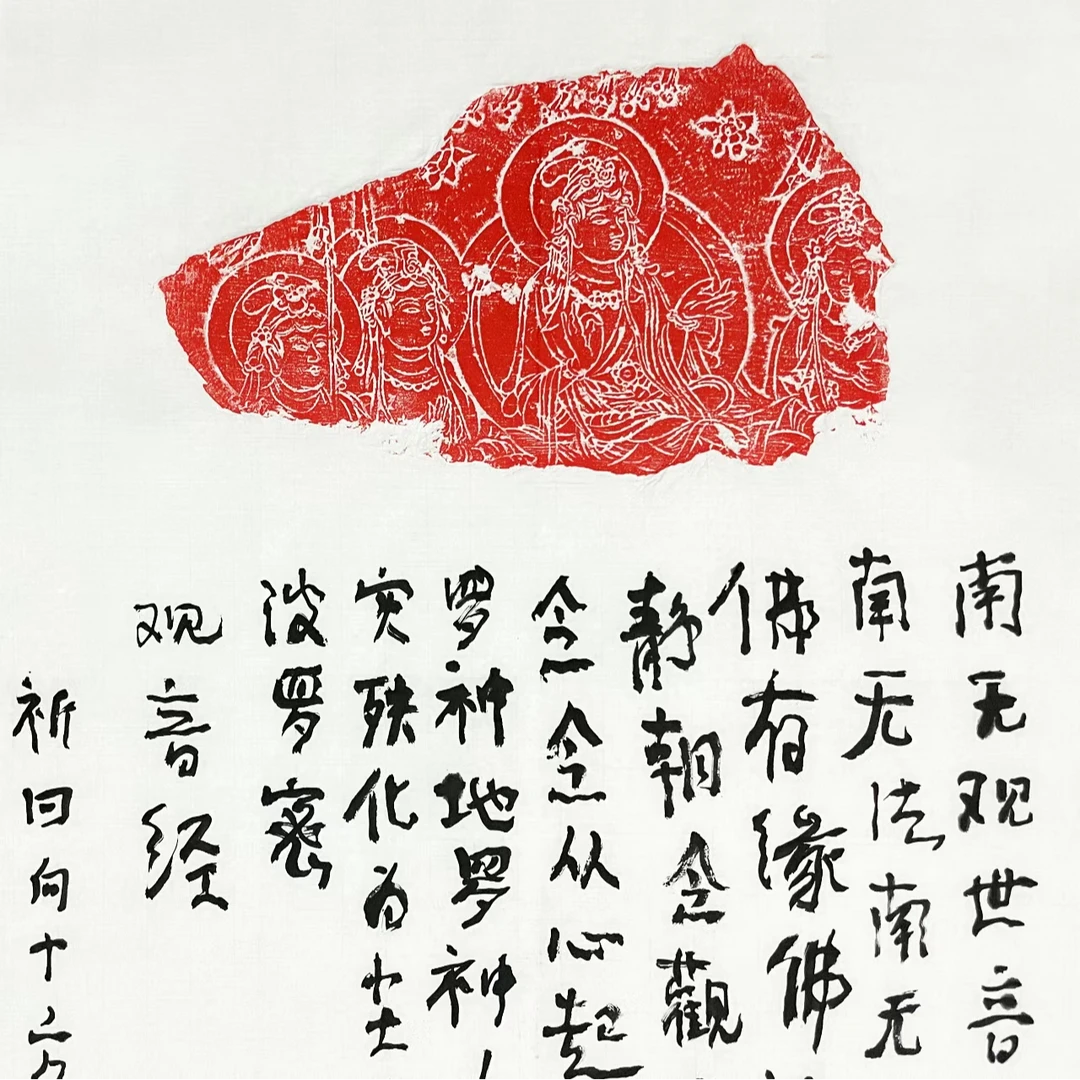 南无观世音
南无法南无
佛有缘佛
静朝念觀
念念从心起
罗神地罗神
灾殃化为尘
波罗密
观音经
祈曰向十六